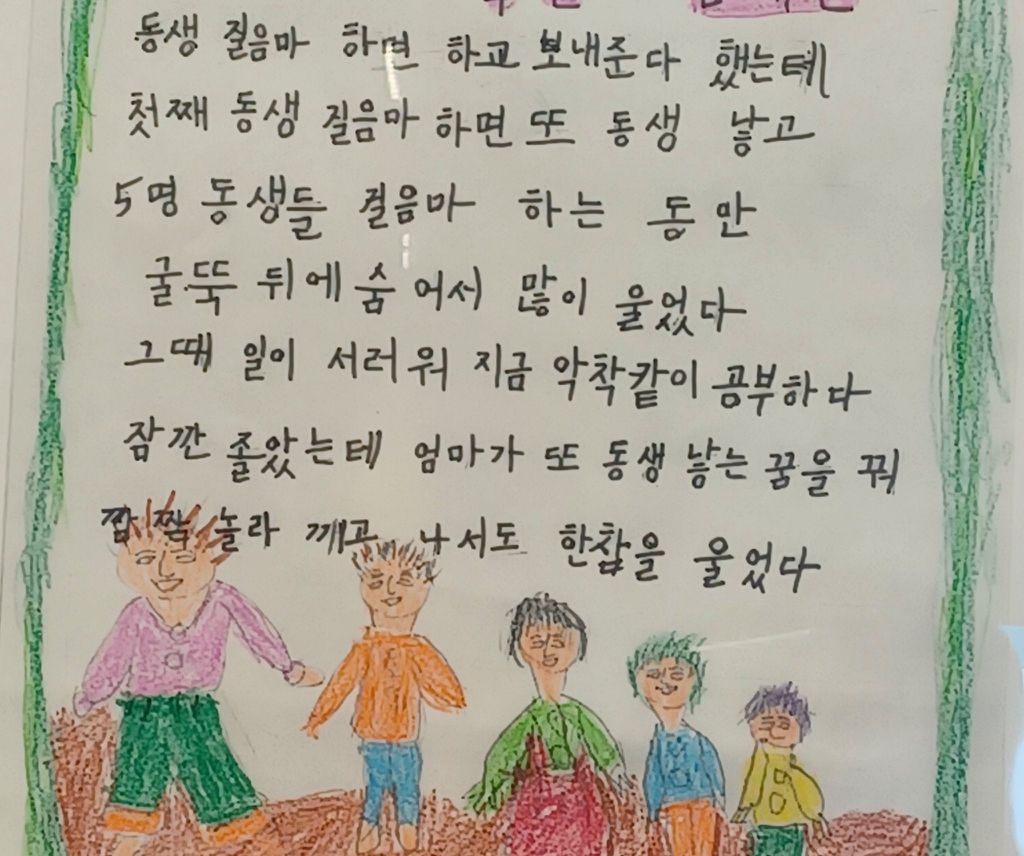 동생 걸음마 하면 하교 보내준다 했는테
첫째 동생 걸음마 하면 또 동생 낳고
5명 동생들 걸음마 하는 동안
굴뚝 뒤에 숨어서 많이 울었다
그때 일이 서러워 지금 악착같이 공부하다
잠깐 졸았는테 엄마가 또 동생 낳는 꿈을 꿔
깜짝 놀라 깨고 나서도 한참을 울었다